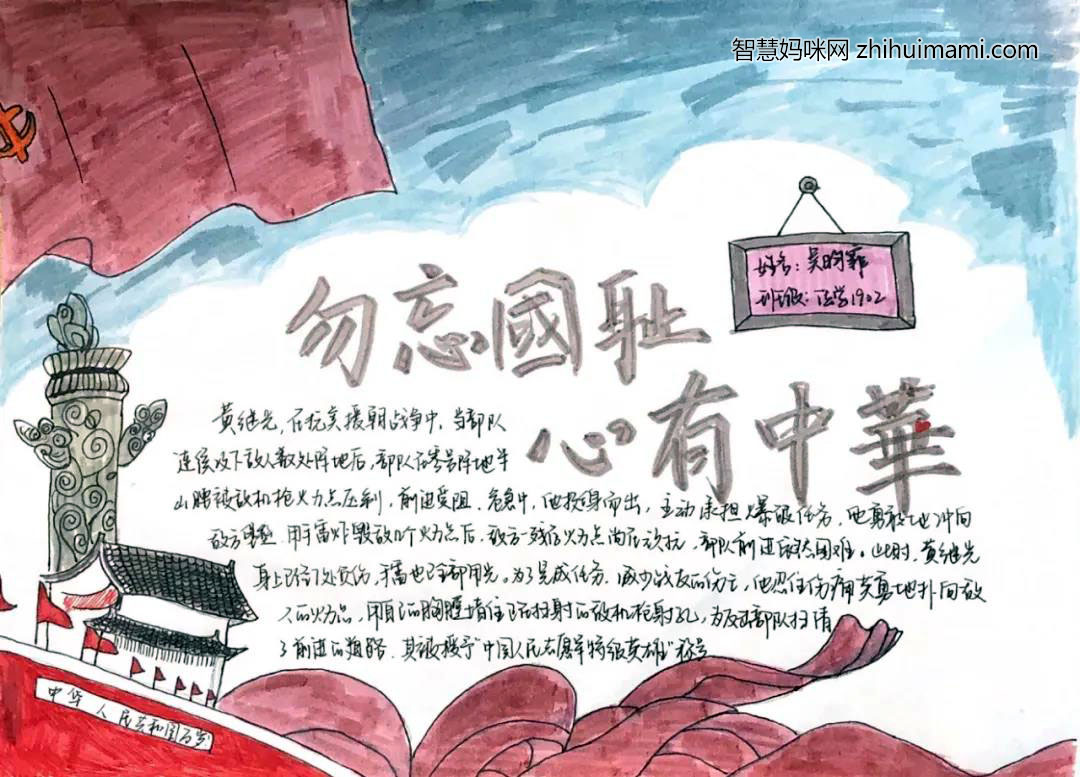 智慧妈咪网 zhihuimami.com
姓名：吴昀霏
班级：医学1902
勿忘國耻
心有中華
黄继光，在抗美援朝战争中，当部队
连续攻下敌人数处阵地后，部队在零号阵地半
山腰被敌机枪火力点压制，前进受阻，危急中，他挺身而出，主动承担爆破任务，他勇敢地冲向
敌方，用手雷炸毁敌火力点后，敌方残存火力点尚在顽抗，部队前进依然困难。此时，黄继光
身上已经7处负伤，手雷也已全部用光。为了完成任务，减少战友的伤亡，他忍住伤痛英勇地扑向敌
人的火力点，用自己的胸膛堵住正在扫射的敌机枪射孔，为反击部队扫清
了前进的道路，其被授予“中国人民志愿军特级英雄”称号
中华人民共和国万岁